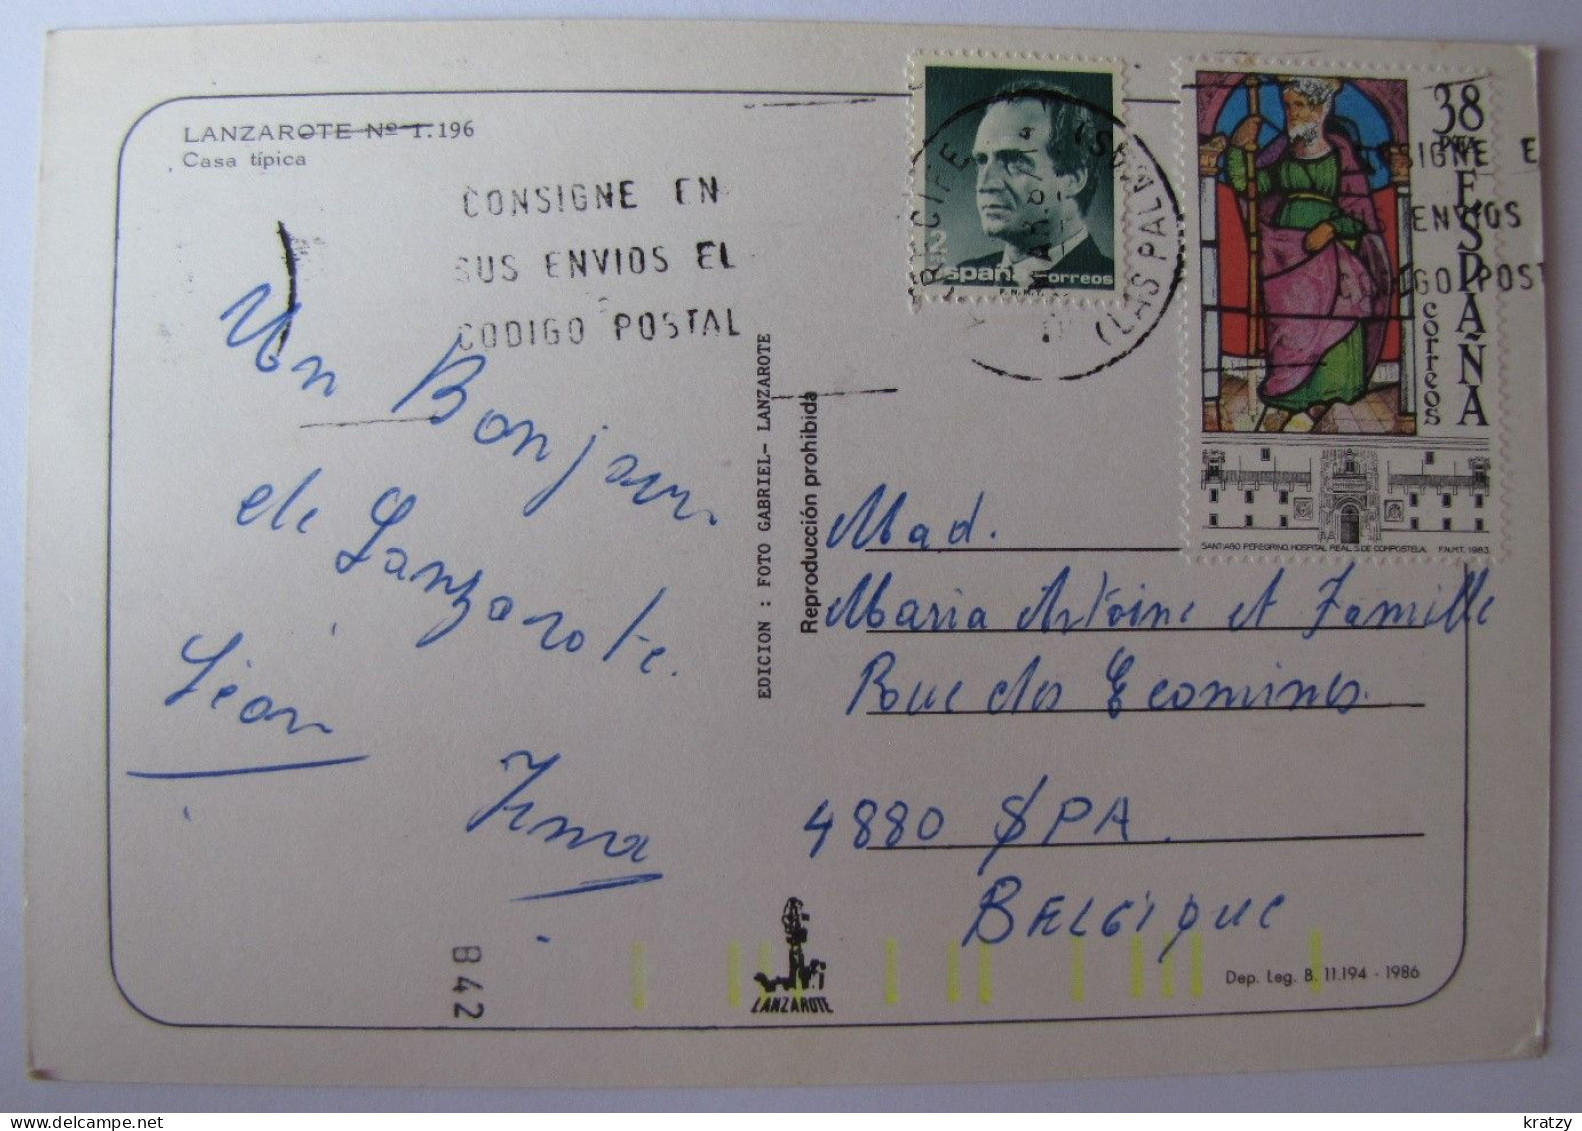 LANZAROTE Nº 1.196
Casa típica
CONSIGNE EN
SUS ENVIOS EL
CODIGO POSTAL
Un Bonjour
de Lanzarote.
Léon
Irma
EDICION : FOTO GABRIEL- LANZAROTE
Reproducción prohibida
2
España Correos
F.N.M.T.
ARRECIFE
(LAS PALMAS)
38
PTA
ESPAÑA
correos
SANTIAGO PEREGRINO. HOSPITAL REAL. S. DE COMPOSTELA. F.N.M.T. 1983
SIGNE E
SUS ENVIOS
CODIGO POST
Mad.
Maria Antoine et Famille
Rue des
4880 SPA
BELGIQUE
B42
LANZAROTE
Dep. Leg. B. 11.194 - 1986
www.delcampe.net
kratzy